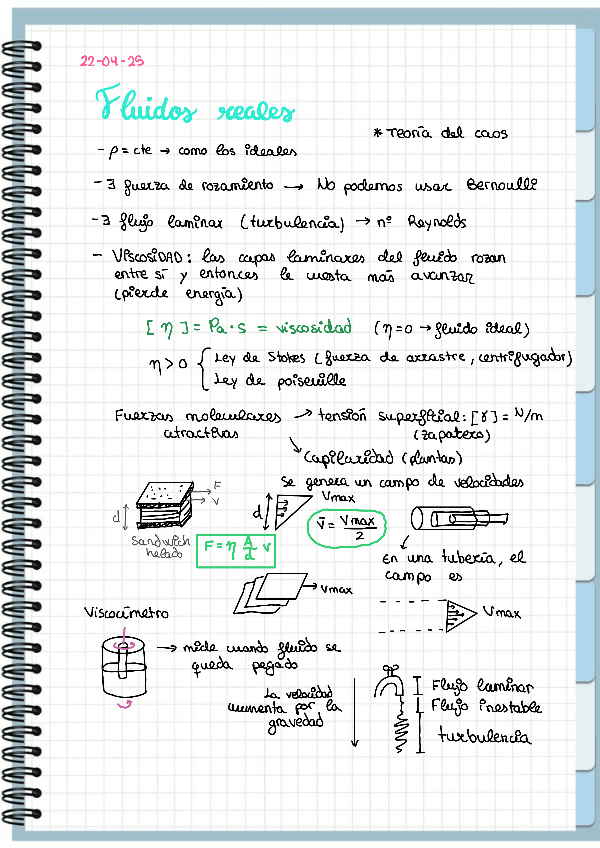 22-04-25
Fluidos reales
* Teoría del caos
- ρ = cte → como los ideales
- ∃ fuerza de rozamiento → No podemos usar Bernoulli
- ∃ flujo laminar (turbulencia) → nº Reynolds
- VISCOSIDAD: las capas laminares del fluido rozan
entre sí y entonces le cuesta más avanzar
(pierde energía)
[η] = Pa·s = viscosidad (η=0 → fluido ideal)
η>0 { Ley de Stokes (fuerza de arrastre, centrifugador)
Ley de poiseuille
Fuerzas moleculares → tensión superficial: [γ] = N/m
atractivas (zapatero)
↘ Capilaridad (plantas)
Se genera un campo de velocidades
F
v
d
Sandwich
helado
F = η A/d v
d
Vmax
v̄ = Vmax/2
En una tubería, el
campo es
Vmax
Vmax
Viscocímetro
→ mide cuando fluido se
queda pegado
La velocidad
aumenta por la
gravedad
Flujo laminar
Flujo inestable
turbulencia